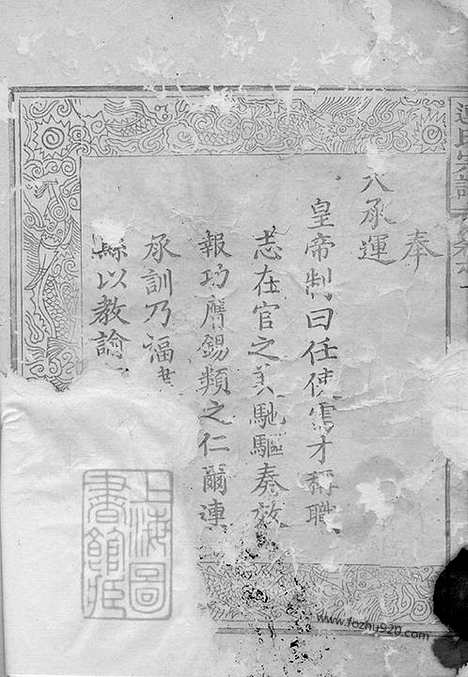 奉
天承運
皇帝制曰任使需才稱職
志在官之美馳驅奏效
報功膺錫類之仁爾連
承訓乃福
縣以教諭
上海圖
書館臧
氏宗譜
www.fozhu920.com